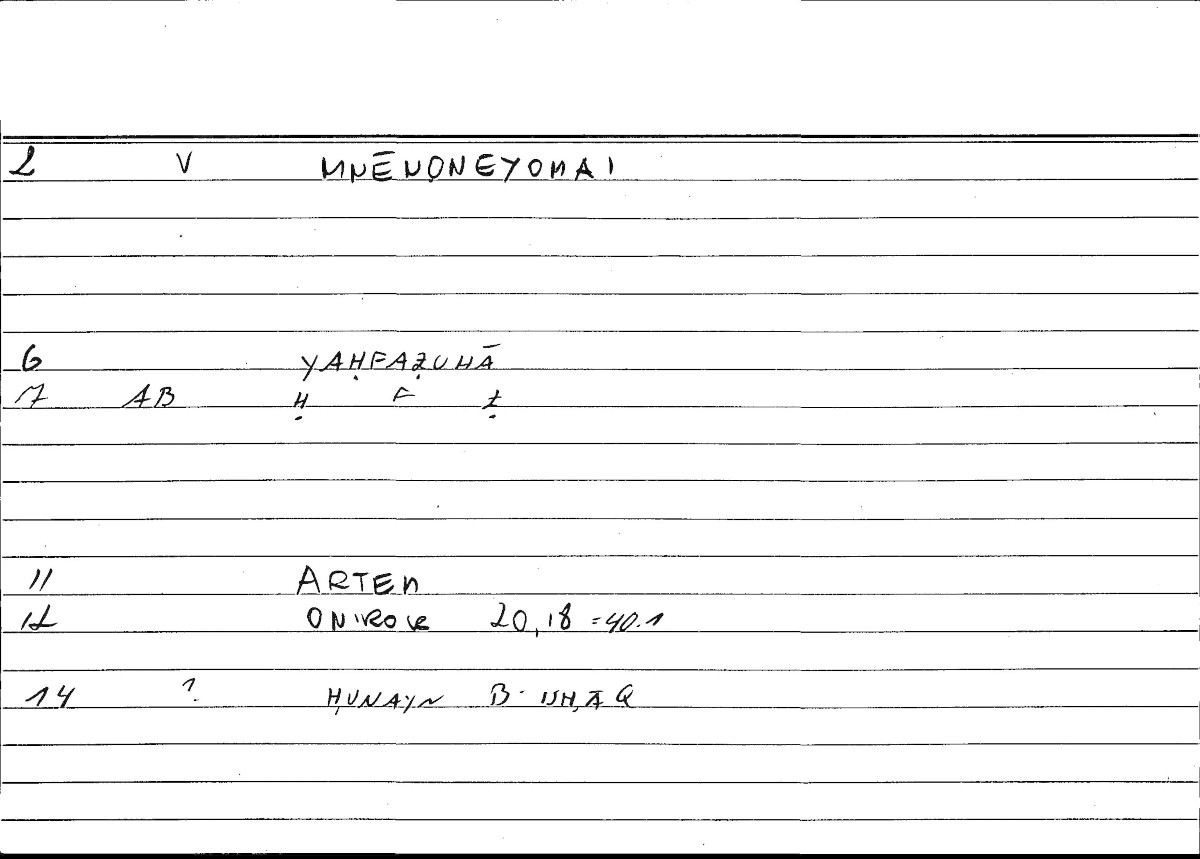 2 V MNĒNONEYOMAI
6 YAḤFAẒUHĀ
7 AB Ḥ F Ẓ
11 ARTEM
12 ONIROCR 20,18 =40.1
14 ? ḤUNAYN B. ISḤĀQ